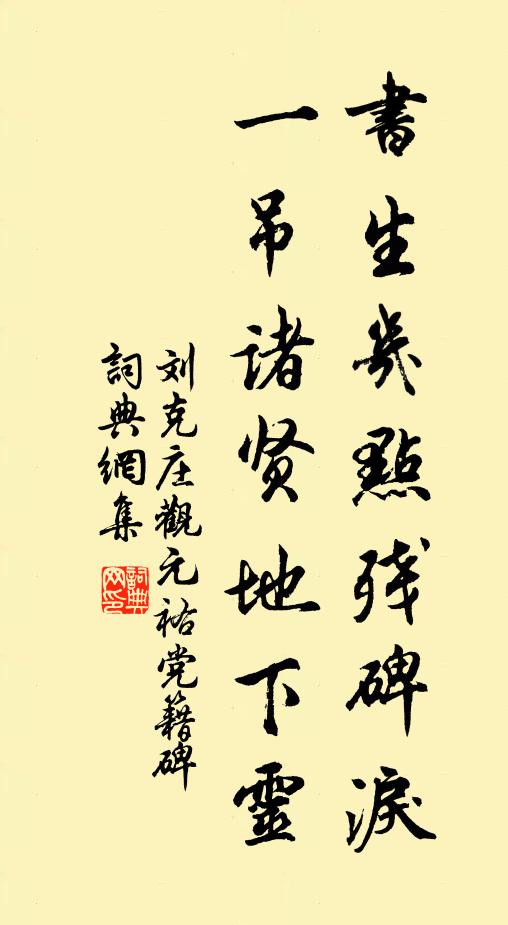 書生幾點残碑淚
一吊诸贤地下靈
刘克庄觀元祐党籍碑
詞典網集
詞典網印